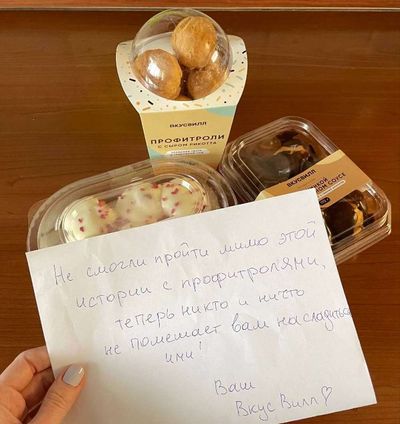 ВКУСВИЛЛ
ПРОФИТРОЛИ
С СЫРОМ РИКОТТА
ВКУСВИЛЛ
СОУСЕ
Не смогли пройти мимо этой
истории с профитролями,
теперь никто и ничто
не помешает вам насладиться
ими!
Ваш
ВкусВилл♡